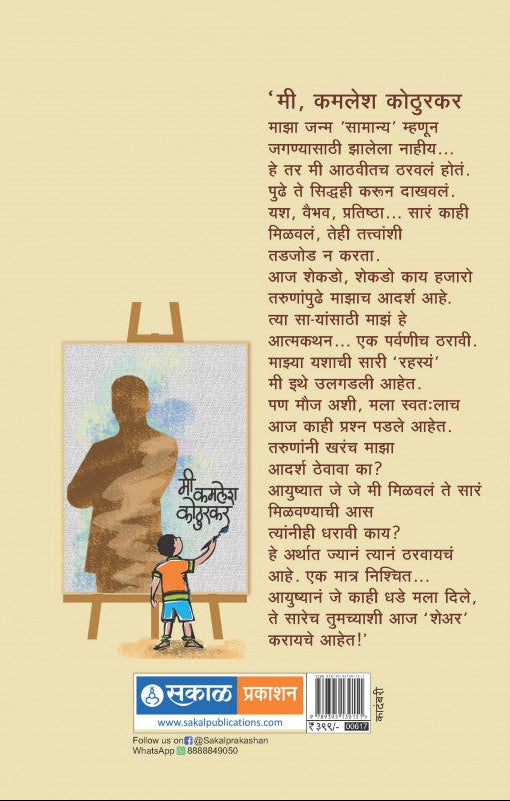 ‘मी, कमलेश कोठुरकर
माझा जन्म ’सामान्य’ म्हणून
जगण्यासाठी झालेला नाहीय...
हे तर मी आठवीतच ठरवलं होतं.
पुढे ते सिद्धही करून दाखवलं.
यश, वैभव, प्रतिष्ठा... सारं काही
मिळवलं, तेही तत्त्वांशी
तडजोड न करता.
आज शेकडो, शेकडो काय हजारो
तरुणांपुढे माझाच आदर्श आहे.
त्या साऱ्यांसाठी माझं हे
आत्मकथन... एक पर्वणीच ठरावी.
माझ्या यशाची सारी ‘रहस्यं’
मी इथे उलगडली आहेत.
पण मौज अशी, मला स्वतःलाच
आज काही प्रश्न पडले आहेत.
तरुणांनी खरंच माझा
आदर्श ठेवावा का?
आयुष्यात जे जे मी मिळवलं ते सारं
मिळवण्याची आस
त्यांनीही धरावी काय?
हे अर्थात ज्यानं त्यानं ठरवायचं
आहे. एक मात्र निश्चित...
आयुष्यानं जे काही धडे मला दिले,
ते सारेच तुमच्याशी आज ‘शेअर’
करायचे आहेत!’
मी
कमलेश
कोठुरकर
सकाळ प्रकाशन
www.sakalpublications.com
Follow us on @Sakalprakashan
WhatsApp 8888849050
₹ ३९९/- 00617
कादंबरी